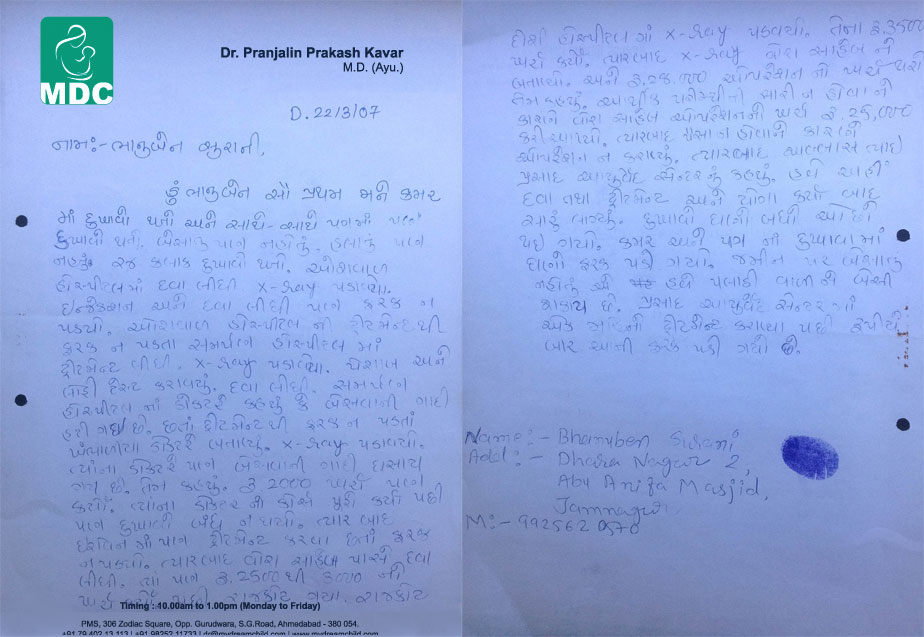 MDC
Dr. Pranjalin Prakash Kavar
M.D. (Ayu.)
D. 22/3/07
નામ:- ભાનુબેન સુરાની,
હું ભાનુબેન સૌ પ્રથમ મને કમર
માં દુખાવો થતો અને સાથે-સાથે પગમાં પણ
દુખાવો થતો. બેસાતુ પણ નહોતું. હલાતુ પણ
નહતું. ૨૪ કલાક દુખાવો થતો. ઓશવાળ
હોસ્પીટલમાં દવા લીધી. X-Ray પડાવ્યા.
ઇન્જેકશન અને દવા લીધી પણ ફરક ન
પડયો. ઓશવાળ હોસ્પીટલ ની ટ્રીટમેન્ટ થી
ફરક ન પડતા સમર્પણ હોસ્પીટલ માં
ટ્રીટમેન્ટ લીધી. X-Ray પડાવ્યા. પેશાબ અને
લોહી ટેસ્ટ કરાવ્યું. દવા લીધી. સમર્પણ
હોસ્પીટલ માં ડોકટરે કહ્યું કે બેસવાની ગાદી
હટી ગઇ છે. છતાં ટ્રીટમેન્ટથી ફરક ન પડતાં
ખંભાળીયા ડોકટરે બતાવ્યું. X-Ray પડાવ્યો.
ત્યાંના ડોકટરે પણ બેસવાની ગાદી ઘસાય
ગય છે. તેમ કહ્યું. રૂ 2000 ખર્ચ પણ
કર્યો. ત્યાંના ડોકટર નો કોર્સ પુરો કર્યા પછી
પણ દુખાવો બંધ ન થયો. ત્યાર બાદ
ઇરવિન માં પણ ટ્રીટમેન્ટ કરવા છતાં ફરક
ન પડયો. ત્યારબાદ વોરા સાહેબ પાસે દવા
લીધી. ત્યાં પણ રૂ. 2500 થી 3000 નો
ખર્ચ થયો. પછી રાજકોટ ગયા. રાજકોટ
Timing : 10.00am to 1.00pm (Monday to Friday)
PMS, 306 Zodiac Square, Opp. Gurudwara, S.G.Road, Ahmedabad - 380 054.
+91 79 402 13 113 | +91 98252 11733 | dr@mydreamchild.com | www.mydreamchild.com
દોશી હોસ્પીટલ માં X-Ray પડાવ્યો. તેના રૂ.3500
ખર્ચ કર્યો. ત્યારબાદ X-Ray વોરા સાહેબ ને
બતાવ્યો. અને રૂ.28,000 ઓપરેશન નો ખર્ચ થશે
તેમ કહ્યું. આર્થીક પરીસ્થીતી સારી ન હોવાની
કારણે વોરા સાહેબ ઓપરેશનની ખર્ચ રૂ. 25,000
કરી આપ્યો. ત્યારબાદ પૈસા ન હોવાને કારણે
ઓપરેશન ન કરાવ્યું. ત્યારબાદ
પ્રસાદ આયુર્વેદ સેન્ટર નું કહ્યું. હવે અહીં
દવા તથા ટ્રીટમેન્ટ અને યોગા કર્યા બાદ
સારું લાગ્યું. દુખાવો ઘણો બધો ઓછો
થઇ ગયો. કમર અને પગ ના દુખાવામાં
ઘણો ફરક પડી ગયો. જમીન પર બેસાતુ
નહોતું હવે પલાઠી વાળી ને બેસી
શકાય છે. પ્રસાદ આયુર્વેદ સેન્ટર માં
એક મહિનો ટ્રીટમેન્ટ કરાવ્યા પછી રૂપીયે
બાર આની ફરક પડી ગયો છે.
Name:- Bhanuben Surani
Add:- Dhara Nagar 2,
Abu Anifa Masjid,
Jamnagar
M:- 992562 0570